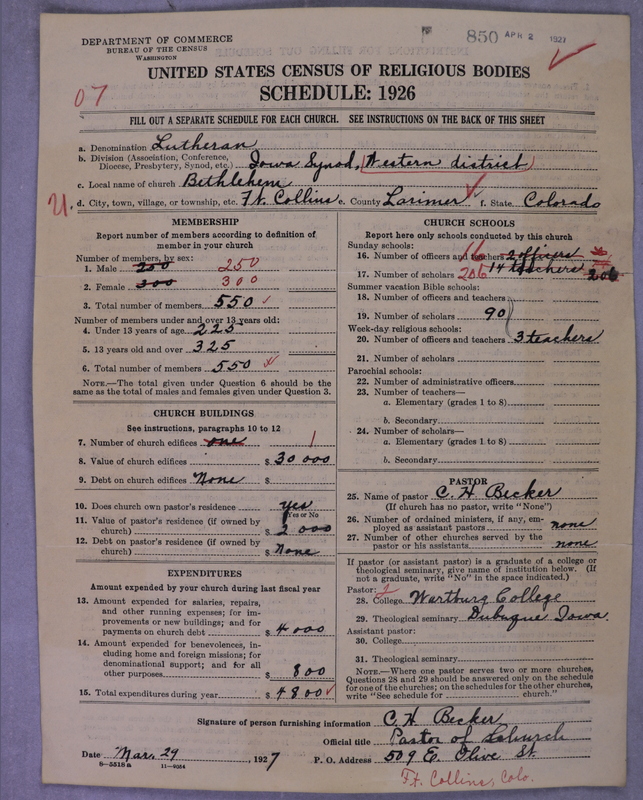 DEPARTMENT OF COMMERCE
BUREAU OF THE CENSUS
WASHINGTON
850 APR 2 1927
UNITED STATES CENSUS OF RELIGIOUS BODIES
SCHEDULE: 1926
07
FILL OUT A SEPARATE SCHEDULE FOR EACH CHURCH. SEE INSTRUCTIONS ON THE BACK OF THIS SHEET
a. Denomination Lutheran
b. Division (Association, Conference, Diocese, Presbytery, Synod, etc.) Iowa Synod, (Western district)
c. Local name of church Bethlehem
U. d. City, town, village, or township, etc. Ft. Collins e. County Larimer f. State Colorado
MEMBERSHIP
Report number of members according to definition of
member in your church
Number of members, by sex:
1. Male 250 250
2. Female 300 300
3. Total number of members 550
Number of members under and over 13 years old:
4. Under 13 years of age 225
5. 13 years old and over 325
6. Total number of members 550
NOTE.—The total given under Question 6 should be
same as the total of males and females given under Question 3.
CHURCH BUILDINGS
See instructions, paragraphs 10 to 12
7. Number of church edifices one 1
8. Value of church edifices $ 30 000
9. Debt on church edifices None $
10. Does church own pastor's residence yes
Yes or No
11. Value of pastor's residence (if owned by
church) $ 2 000
12. Debt on pastor's residence (if owned by
church) $ None
EXPENDITURES
Amount expended by your church during last fiscal year
13. Amount expended for salaries, repairs,
and other running expenses; for im-
provements or new buildings; and for
payments on church debt $ 4000
14. Amount expended for benevolences, in-
cluding home and foreign missions; for
denominational support; and for all
other purposes $ 800
15. Total expenditures during year $ 4800
CHURCH SCHOOLS
Report here only schools conducted by this church
Sunday schools:
16. Number of officers and teachers 16 2 officers
17. Number of scholars 206 14 teachers 206
Summer vacation Bible schools:
18. Number of officers and teachers
19. Number of scholars 90
Week-day religious schools:
20. Number of officers and teachers 3 teachers
21. Number of scholars
Parochial schools:
22. Number of administrative officers
23. Number of teachers—
a. Elementary (grades 1 to 8)
b. Secondary
24. Number of scholars—
a. Elementary (grades 1 to 8)
b. Secondary
PASTOR
25. Name of pastor C. H. Becker
(If church has no pastor, write "None")
26. Number of ordained ministers, if any, em-
ployed as assistant pastors none
27. Number of other churches served by the
pastor or his assistants none
If pastor (or assistant pastor) is a graduate of a college or
theological seminary, give name of institution below. (If
not a graduate, write "No" in the space indicated.)
Pastor:
28. College Wartburg College
29. Theological seminary Dubuque Iowa
Assistant pastor:
30. College
31. Theological seminary
NOTE.—Where one pastor serves two or more churches,
Questions 28 and 29 should be answered only on the schedule
for one of the churches; on the schedules for the other churches,
write "See schedule for church."
Signature of person furnishing information C. H. Becker
Official title Pastor of Church
Date Mar. 29, 1927 P. O. Address 509 E. Olive St.
8—5518a 11—9054
Ft. Collins, Colo.